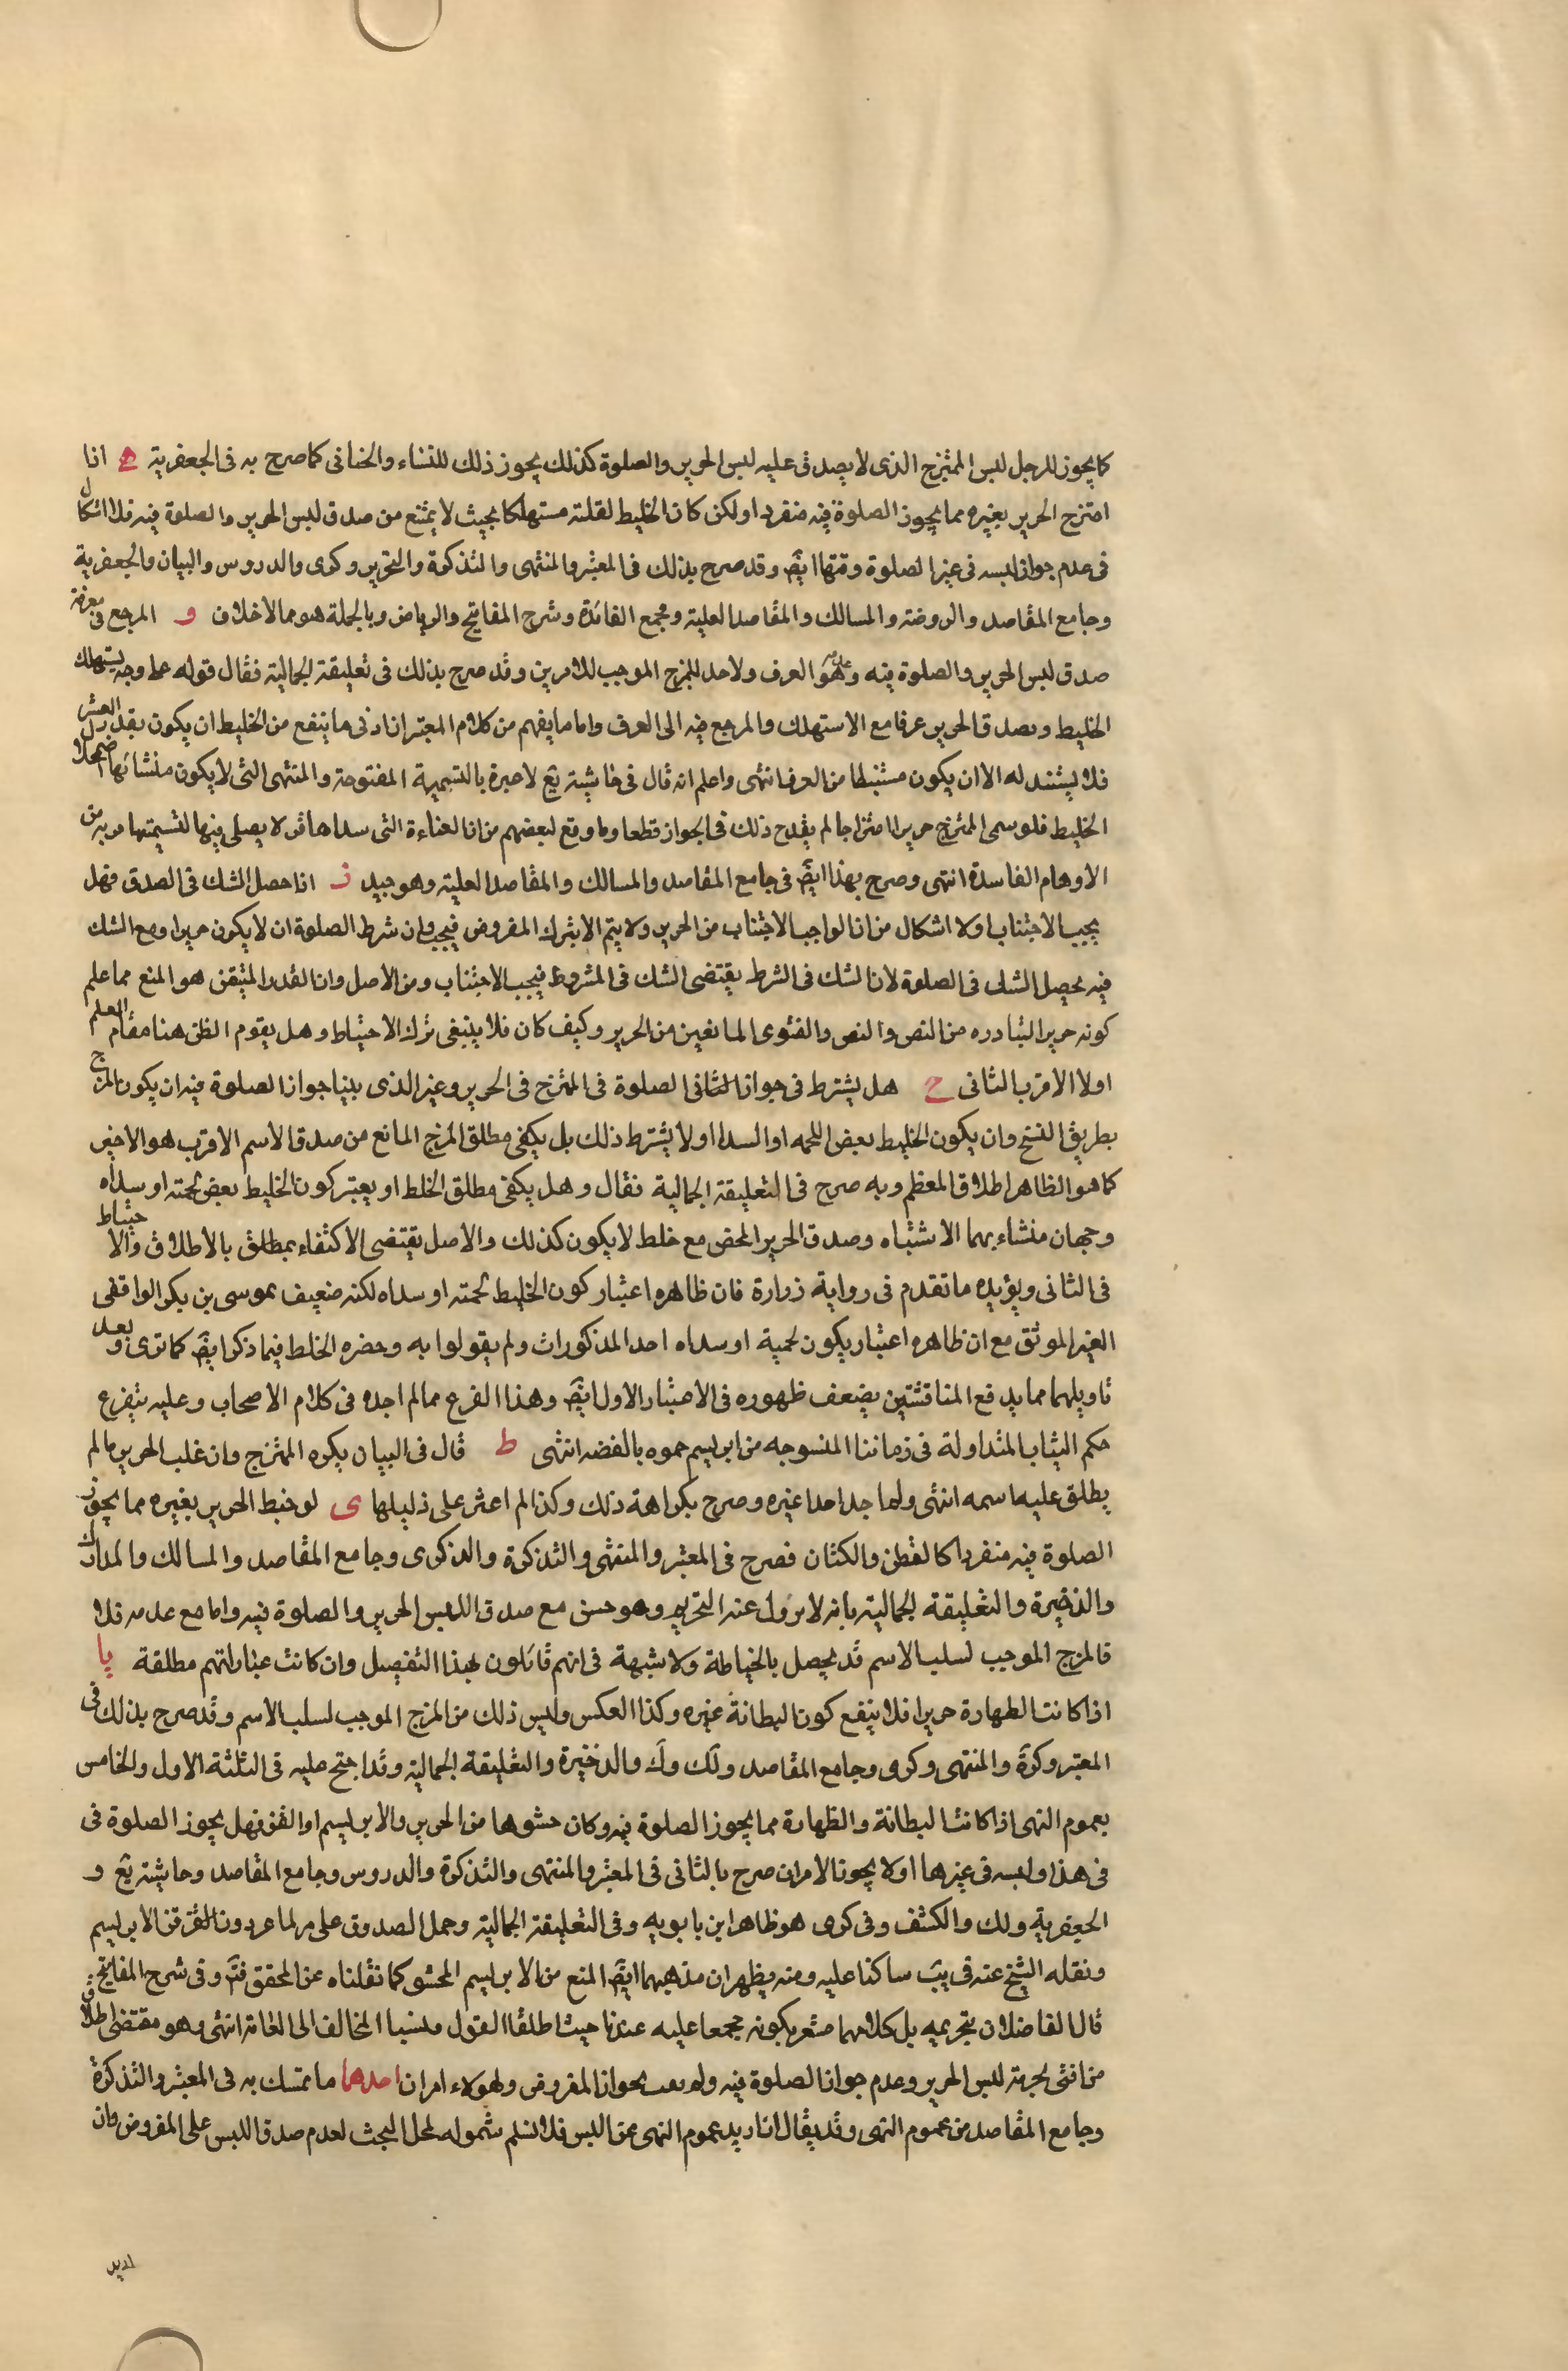 كما يجوز للرجل لبس الممتزج الذى لا يصدق عليه لبس الحرير والصلوة كذلك يجوز ذلك للنساء والخناثى كما صرح به فى الجعفرية ه اذا
امتزج الحرير بغيره مما يجوز الصلوة فيه منفردا ولكن كان الخليط لقلته مستهلكا بحيث لا يمتنع من صدق لبس الحرير والصلوة فيه فلا اشكال
فى عدم جواز لبسه فى غير الصلوة وفيها ايضَ وقد صرح بذلك فى المعتبر والمنتهى والتذكرة والتحرير وكرى والدروس والبيان والجعفرية
وجامع المقاصد والروضة والمسالك والمقاصد العلية ومجمع الفائدة وشرح المفاتيح والرياض وبالجملة هو مما لا خلاف و المرجع فى معرفة
صدق لبس الحرير والصلوة فيه وعدمه هو العرف ولا حد للمزج الموجب للامرين وقد صرح بذلك فى تعليقة الجمالية فقال قوله على وجه يستهلك
الخليط ويصدق الحرير عرفا مع الاستهلاك والمرجع فيه الى العرف واما ما يفهم من كلام المعتبر ان ادنى ما ينفع من الخليط ان يكون بقدر العشر
فلا يستند له الا ان يكون مستنبطا من العرف انتهى واعلم انه قال فى حاشية يع لا عبرة بالتسمية المفتوحة والمنتهى التى لا يكون منشائها اضمحلال
الخليط فلو سمى الممتزج حريرا امتزاجا لم يقدح ذلك فى الجواز قطعا وما وقع لبعضهم من ان العباءة التى سداها قز لا يصلى فيها لتسميتها حرير من
الاوهام الفاسدة انتهى وصرح بهذا ايضَ فى جامع المقاصد والمسالك والمقاصد العلية وهو جيد ز اذا حصل الشك فى الصدق فهل
يجب الاجتناب اولا اشكال من ان الواجب الاجتناب من الحرير ولا يتم الا بترك المفروض فيجب وان شرط الصلوة ان لا يكون حريرا ومع الشك
فيه يحصل الشك فى الصلوة لان الشك فى الشرط يقتضى الشك فى المشروط فيجب الاجتناب ومن الاصل وان القدر المتيقن هو المنع مما علم
كونه حرير التبادره من النص والنص والفتوى المانعين من الحرير وكيف كان فلا ينبغى ترك الاحتياط وهل يقوم الظن هنا مقام العلم
اولا الاقرب الثانى ح هل يشترط فى جواز الثانى الصلوة فى الممتزج فى الحرير وغير الذى بينا جواز الصلوة فيه ان يكون المزج
بطريق النسخ وان يكون الخليط بعض اللحمه او السدا اولا يشترط ذلك بل يكفى مطلق المزج المانع من صدق الاسم الاقرب هو الاخير
كما هو الظاهر اطلاق المعظم وبه صرح فى التعليقة الجمالية فقال وهل يكفى مطلق الخلط او يعتبر كون الخليط بعض لحمته او سداه
وجهان منشاء بهما الاشتباه وصدق الحرير المحض مع خلط لا يكون كذلك والاصل يقتضى الاكتفاء بمطلق بالاطلاق والاحتياط
فى الثانى ويؤيده ما تقدم فى رواية زرارة فان ظاهره اعتبار كون الخليط لحمته او سداه لكنه ضعيف بموسى بن بكر الواقفى
الغير الموثق مع ان ظاهره اعتبار يكون لحمية او سداه احد المذكورات ولم يقولوا به وحضره الخلط فيما ذكر ايضَ كما ترى وبعد
تاويلهما مما يدفع المناقشتين يضعف ظهوره فى الاعتبار الاول ايضَ وهذا الفرع مما لم اجده فى كلام الاصحاب وعليه يتفرع
حكم الثياب المتداولة فى زماننا المنسوجه من ابريسم مموه بالفضه انتهى ط قال فى البيان يكره الممتزج وان غلب الحرير ما لم
يطلق عليه اسمه انتهى ولم اجد احدا غيره وصرح بكراهة ذلك وكذا لم اعثر على دليلها ى لو خيط الحرير بغيره مما يجوز
الصلوة فيه منفردا كالقطن والكتان فصرح فى المعتبر والمنتهى والتذكرة والذكرى وجامع المقاصد والمسالك والمدارك
والذخيرة والتعليقة الجمالية بانه لا يزول عنه التحريم وهو حسن مع صدق اللبس الحرير والصلوة فيه واما مع عدمه فلا
فالمزج الموجب لسلب الاسم قد يحصل بالخياطة ولا شبهة فى انهم قائلون بهذا التفصيل وان كانت عباراتهم مطلقة يا
اذا كانت الظهارة حريرا فلا ينفع كون البطانة غيره وكذا العكس وليس ذلك من المزج الموجب لسلب الاسم وقد صرح بذلك فى
المعتبر وكرَة والمنتهى وكرى وجامع المقاصد ولَك وكَ والذخيرة والتعليقة الجمالية وقد احتج عليه فى الثلثة الاول والخامس
بعموم النهى اذا كانت البطانة والظهارة مما يجوز الصلوة فيه وكان حشوها من الحرير والابريسم او القز فهل يجوز الصلوة فى
فى هذا ولبسه فى غيرها اولا يجوز الامران صرح بالثانى فى المعتبر والمنتهى والتذكرة والدروس وجامع المقاصد وحاشيته يع و
الجعفرية ولك والكشف وفى كرى هو ظاهر ابن بابويه وفى التعليقة الجمالية وحمل الصدوق على قز الماعز دون القز من الابريسم
ونقله الشيخ عنه فى يبَ ساكتا عليه ومنه يظهر ان مذهبهما ايضَ المنع من الابريسم المحشو كما نقلناه عن المحقق فتَ وفى شرح المفاتيح
قال الفاضلان بتحريمه بل كلامهما مشعر بكونه مجمعا عليه عندنا حيث اطلقا القول ونسبا المخالف الى العامة انتهى وهو مقتضى اطلاق
من افتى بحرمة لبس الحرير وعدم جواز الصلوة فيه ولم بجواز المفروض ولهؤلاء امران احدهما ما تمسك به فى المعتبر والتذكرة
وجامع المقاصد من عموم النهى وقد يقال ان اريد عموم النهى عن اللبس فلا نسلم شموله لمحل البحث لعدم صدق اللبس على المفروض وان
اريد